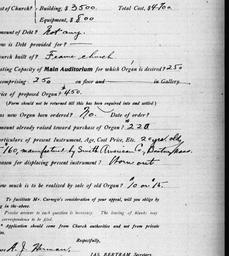 st of Church? { Building, $3500. Total Cost, $4700.
Equipment, $800
mount of Debt? Not any.
me is Debt provided for?
urch built of? Frame church
ating Capacity of Main Auditorium for which Organ is desired? 250
omprising 250 on floor and in Gallery.
rice of proposed Organ? $450.
(Form should not be returned till this has been enquired into and settled)
as new Organ been ordered? No. Date of order?
mount already raised toward purchase of Organ? $225
articulars of present Instrument, Age, Cost Price, Etc. 20 years old,
$160, manufactured by Smith American Co., Boston, Mass.
eason for displacing present instrument? Worn out
ow much is to be realized by sale of old Organ? $10 or 15.
To facilitate Mr. Carnegie's consideration of your appeal, will you oblige by
g in the above.
Precise answer to each question is necessary. The leaving of blanks may
correspondence and no profit.
Application should come from Church authorities and not from private
Respectfully,
JAS. BERTRAM Secretary